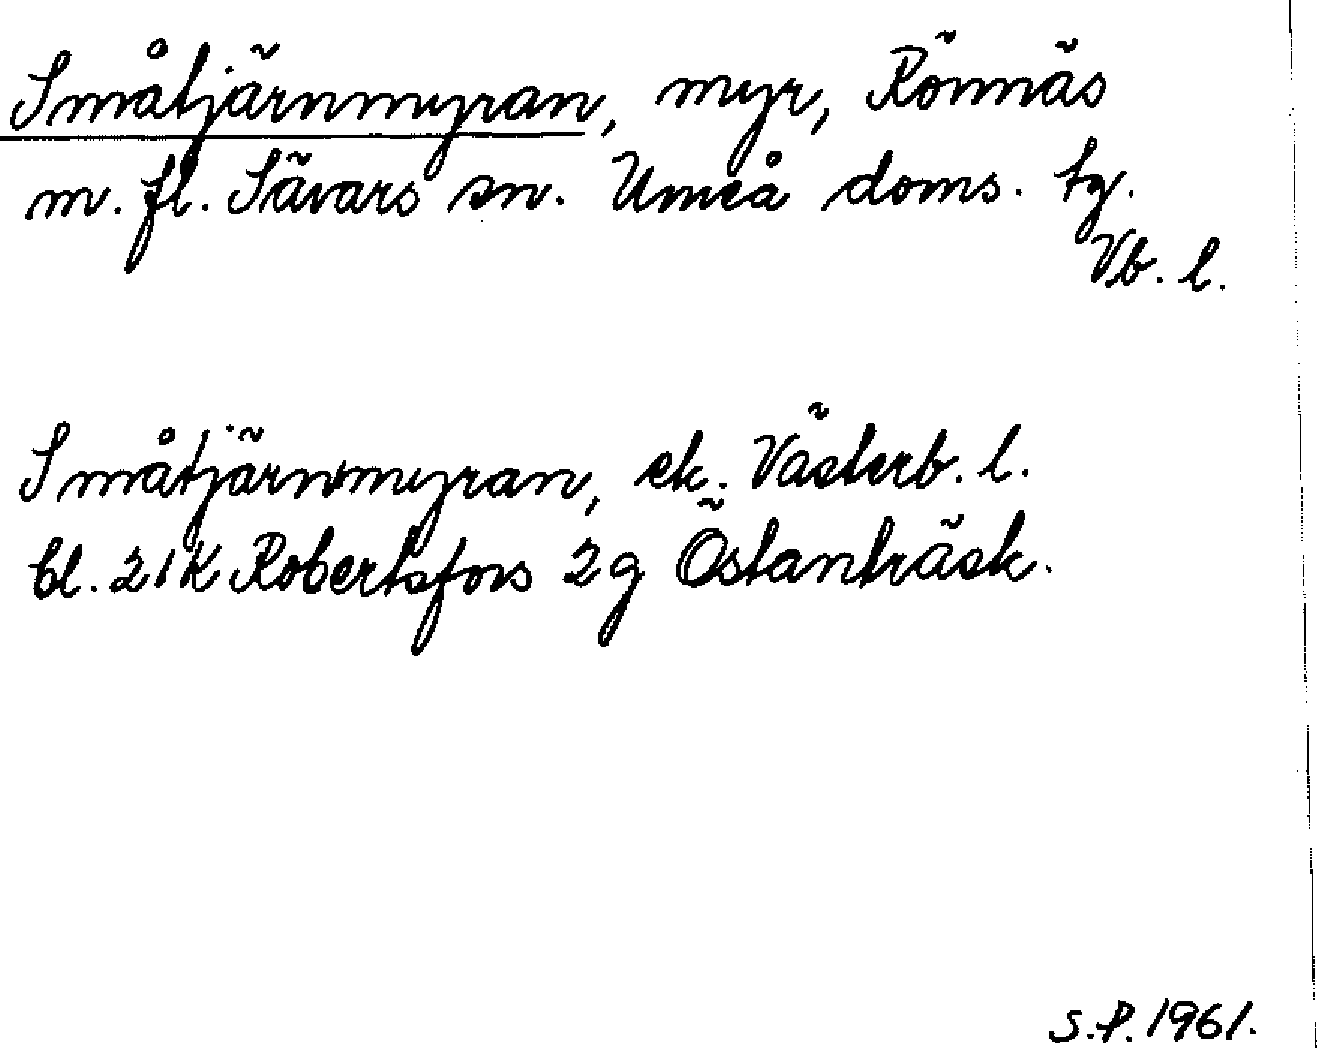 Småtjärnmyran, myr, Rönnäs
m. fl. Sävars sn. Umeå doms. tg.
Vb. l.
Småtjärnmyran, ek. Västerb. l.
bl. 21K Robertsfors 2g Östanträsk.
S.P. 1961.